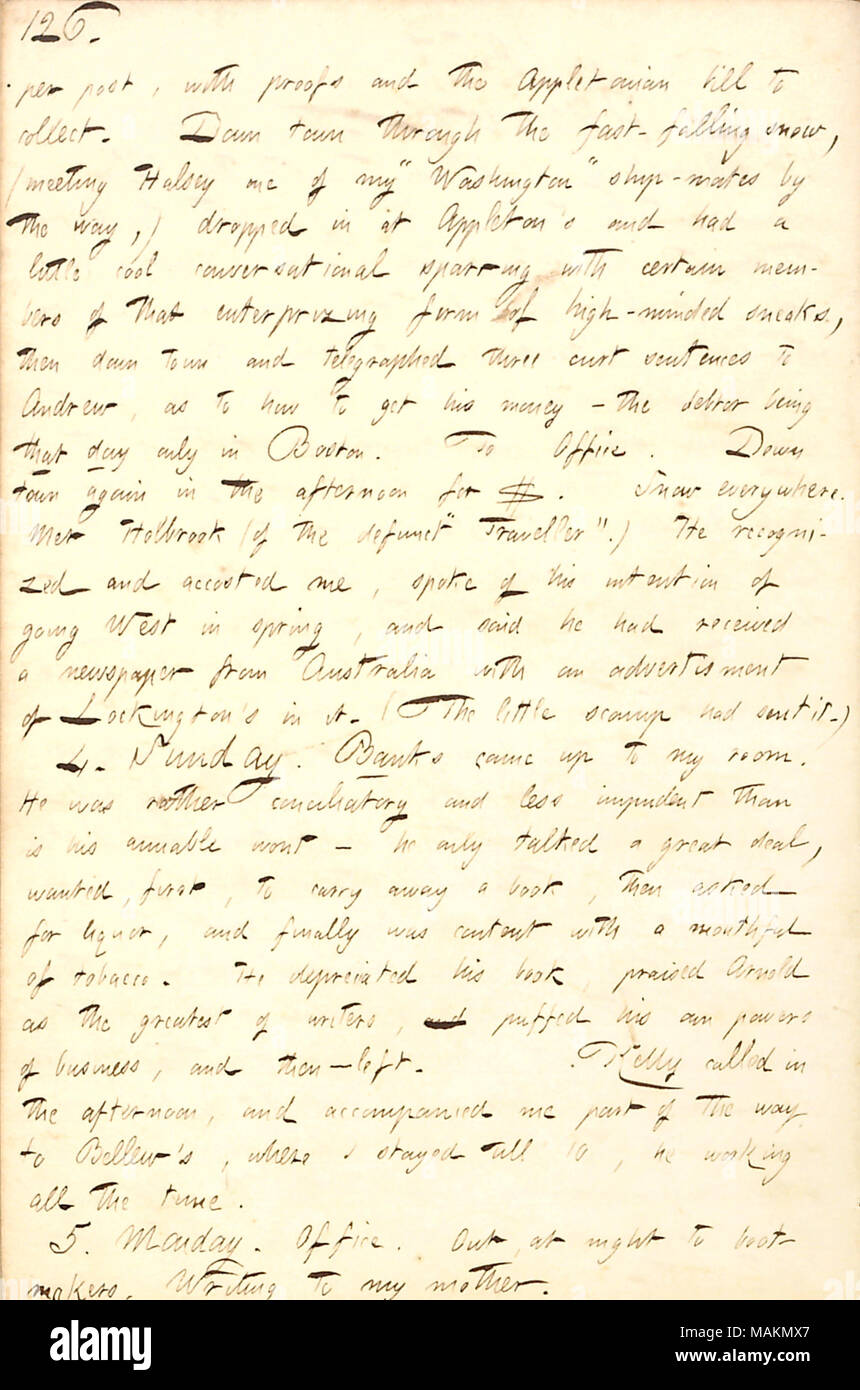 126.
per post, with proofs and the Appletonian bill to
collect. Down town through the fast-falling snow,
(meeting Halsey one of my "Washington" ship-mates by
the way,) dropped in at Appleton's and had a
little cool conversational sparring with certain mem-
bers of that enterprizing firm of high-minded sneaks,
then down town and telegraphed three curt sentences to
Andrew, as to how to get his money — the debtor being
that day only in Boston. To Office. Down
town again in the afternoon for $. Snow everywhere.
Met Holbrook (of the defunct "Traveller".) He recogni-
zed and accosted me, spoke of his intention of
going West in spring, and said he had received
a newspaper from Australia with an advertisment
of Lockington's in it. (The little scamp had sent it.)
4. Sunday. Banks came up to my room.
He was rather conciliatory and less impudent than
is his amiable wont — he only talked a great deal,
wanted, first, to carry away a book, then asked
for liquor, and finally was content with a mouthful
of tobacco. He depreciated his book, praised Arnold
as the greatest of writers, and puffed his own powers
of business, and then — left. Kelly called in
the afternoon, and accompanied me part of the way
to Bellew's, where I stayed till 10, he working
all the time.
5. Monday. Office. Out, at night to boot-
makers. Writing to my mother.
alamy
Image ID: MAKMX7
www.alamy.com